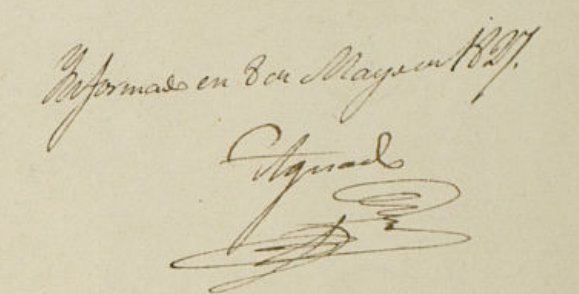 Informado en 8 de Mayo de 1827.
Aguado